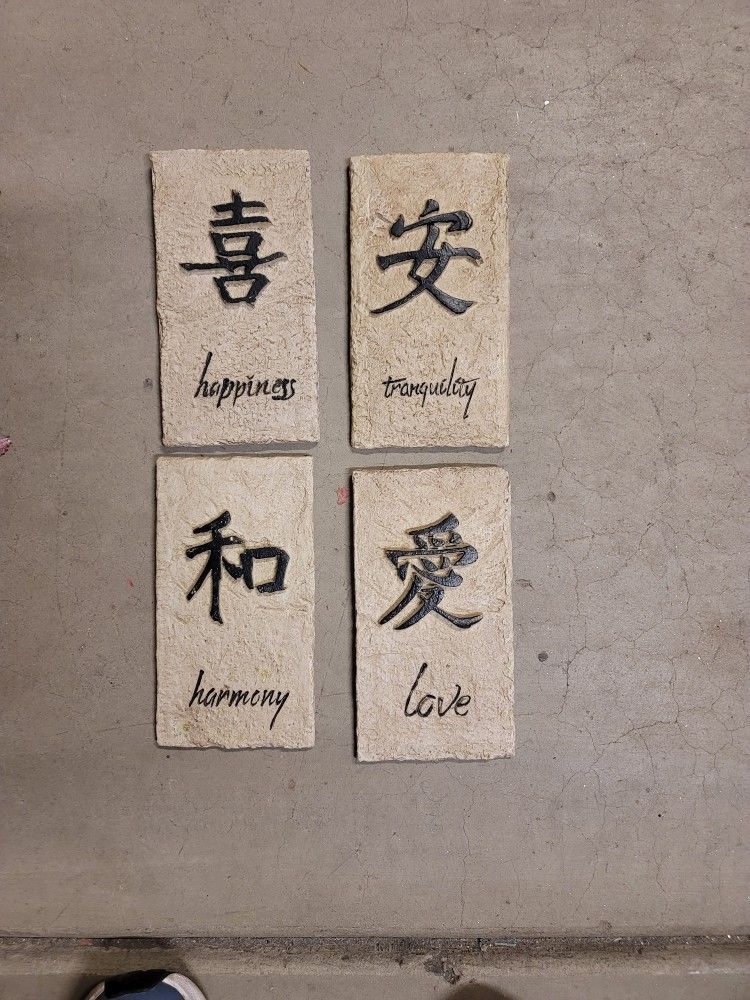 喜
happiness
安
tranquility
和
harmony
愛
love